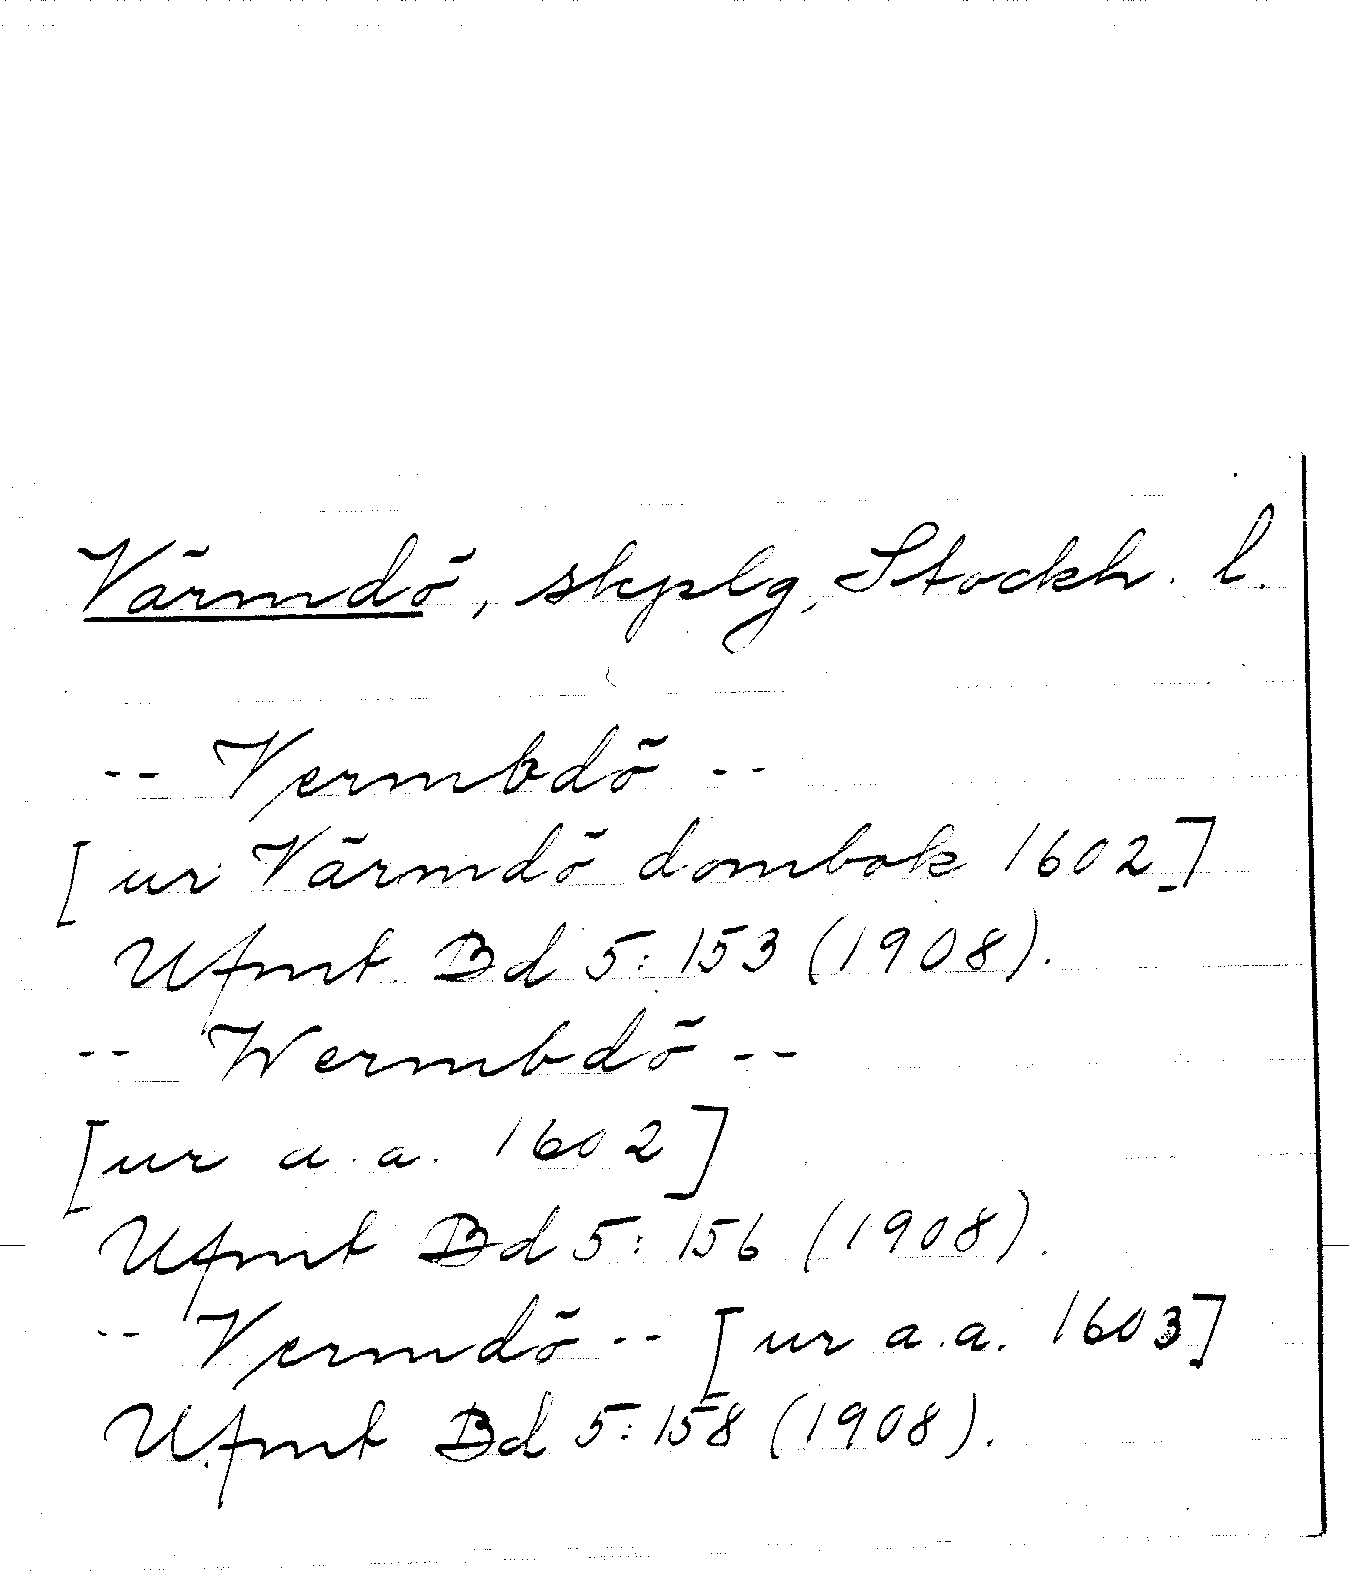 Värmdö, skplg, Stockh. l.
-- Vermbdö --
[ur Värmdö dombok 1602]
Ufmt Bd 5:153 (1908).
-- Wermbdö --
[ur a.a. 1602]
Ufmt Bd 5:156 (1908).
-- Vermdö -- [ur a.a. 1603]
Ufmt Bd 5:158 (1908).